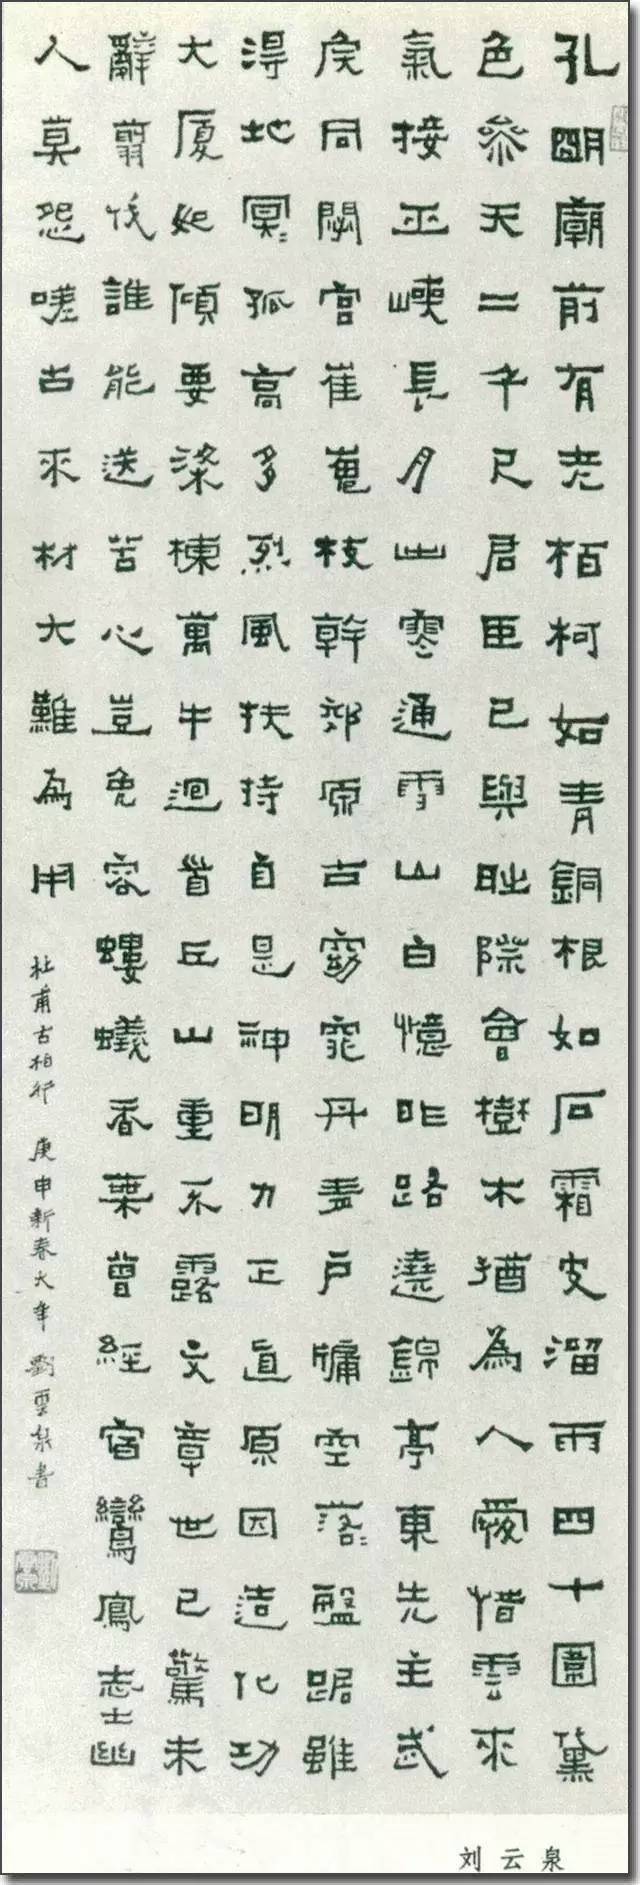 孔明廟前有老栢柯如青銅根如石霜皮溜雨四十圍黛
色參天二千尺君臣已與時際會樹木猶為人愛惜雲來
氣接巫峽長月出寒通雪山白憶昨路遶錦亭東先主武
侯同閟宮崔嵬枝幹郊原古窈窕丹青戶牖空落〻盤踞雖
得地冥〻孤高多烈風扶持自是神明力正直原因造化功
大廈如傾要梁棟萬牛迴首丘山重不露文章世已驚未
辭翦伐誰能送苦心豈免容螻蟻香葉曾經宿鸞鳳志士幽
人莫怨嗟古來材大難為用
杜甫古柏行 庚申新春大年 劉雲泉書
刘云泉